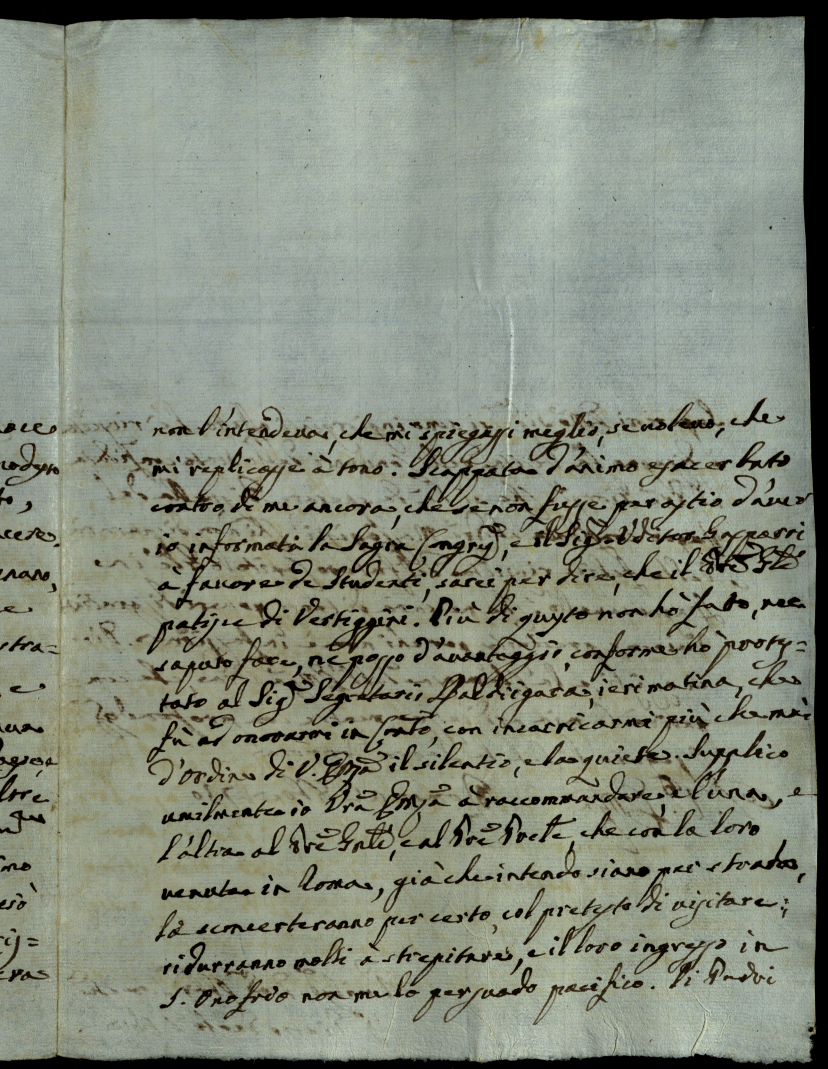 non l'intendeva, che mi spiegassi meglio, se volevo, che
mi replicasse à tono. Scappata d'animo esacerbato
contro di me ancora, che se non fusse per astio d'aver
io informata la Sagra Congreg.e, e il Sig.r Uditor Gasparri
à favore de Studenti, sarei per dire, che il P̃re G̃nle
patisse di Vertiggini. Più di questo non hò fatto, ne
saputo fare, nè posso d'avantaggio, conforme hò prote=
tato al Sig.r Segretario ieri matina, che
fù ad onorarmi in Conto, con incarricarmi più che mai
d'ordine di V. Em̃za il silentio, e la quiete. Supplico
umilmente io Vr̃a Em̃za à raccommandare, e l'una, e
l'altra al P̃re G̃nle, e al P̃re che con la loro
venuta in Roma, già che intendo siano per strada,
la sconcerteranno per certo, col pretesto di visitare;
ridurranno molti à strepitare, e il loro ingresso in
S. Onofrio non me lo persuado pacifico. Li Padri
acese
to,
e
stra=
e
ova